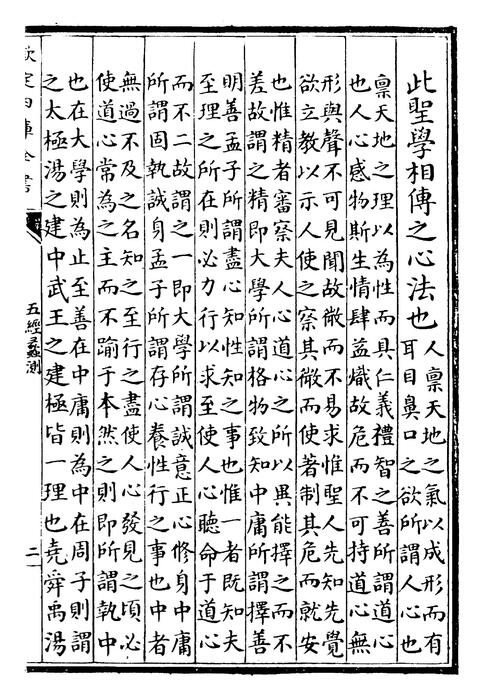 此聖學相傳之心法也
人禀天地之氣以成形而有
耳目鼻口之欲所謂人心也
禀天地之理以為性而具仁義禮智之善所謂道心
也人心感物斯生情肆益熾故危而不可持道心無
形與聲不可見聞故微而不易求惟聖人先知先覺
欲立教以示人使之察其微而使著制其危而就安
也惟精者審察夫人心道心之所以異能擇之而不
差故謂之精即大學所謂格物致知中庸所謂擇善
明善孟子所謂盡心知性知之事也惟一者既知夫
至理之所在則必力行以求至使人心聽命于道心
而不二故謂之一即大學所謂誠意正心脩身中庸
所謂固執誠身孟子所謂存心養性行之事也中者
無過不及之名知之至行之盡使人心發見之頃必
使道心常為之主而不踰于本然之則即所謂執中
也在大學則為止至善在中庸則為中在周子則謂
之太極湯之建中武王之建極皆一理也堯舜禹湯
欽定四庫全書
五經蠡測
二